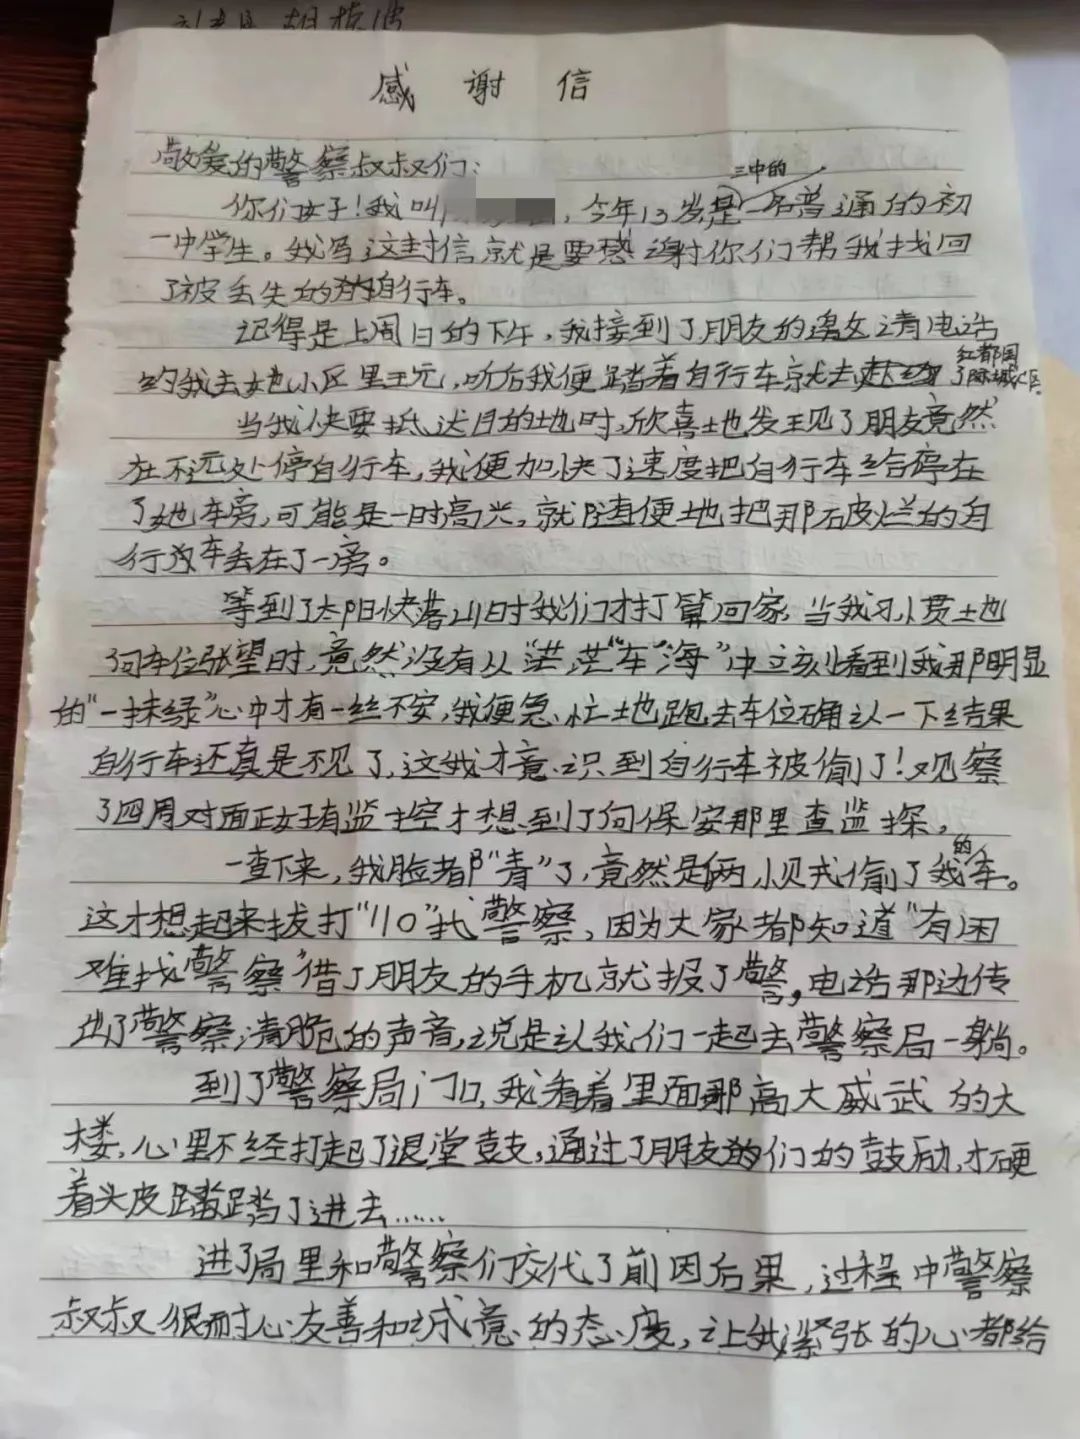 感谢信
敬爱的警察叔叔们:
三中的
你们好!我叫, 今年13岁是一名普通的初
一中学生。我写这封信就是要感谢你们帮我找回
了被丢失的自行车。
记得是上周日的下午,我接到了朋友的邀请电话
红都国
约我去她小区里玩,听后我便踏着自行车就去了际城小区。
当我快要抵达目的地时,欣喜地发现了朋友竟然
在不远处停自行车,我便加快了速度把自行车给停在
了她车旁,可能是一时高兴,就随便地把那破烂的自
行车丢在了一旁。
等到了太阳快落山时我们才打算回家,当我习惯地
向车位张望时,竟然没有从“茫茫”车“海”中立刻看到我那明显
的“一抹绿”心中才有一丝不安,我便急忙地跑去车位确认一下结果
自行车还真是不见了,这我才意识到自行车被偷了!观察
了四周对面正好有监控才想到了向保安那里查监探,
一查下来,我脸都“青”了,竟然是俩小贼偷了我的车。
这才想起来拔打“110”找警察,因为大家都知道“有困
难找警察”借了朋友的手机就报了警,电话那边传
出了警察清脆的声音,说是让我们一起去警察局一躺。
到了警察局门口,我看着里面那高大威武的大
楼,心里不经打起了退堂鼓,通过了朋友们的鼓励,才硬
着头皮踏了进去……
进了局里和警察们交代了前因后果,过程中警察
叔叔很耐心友善和诚意的态度,让我紧张的心都给